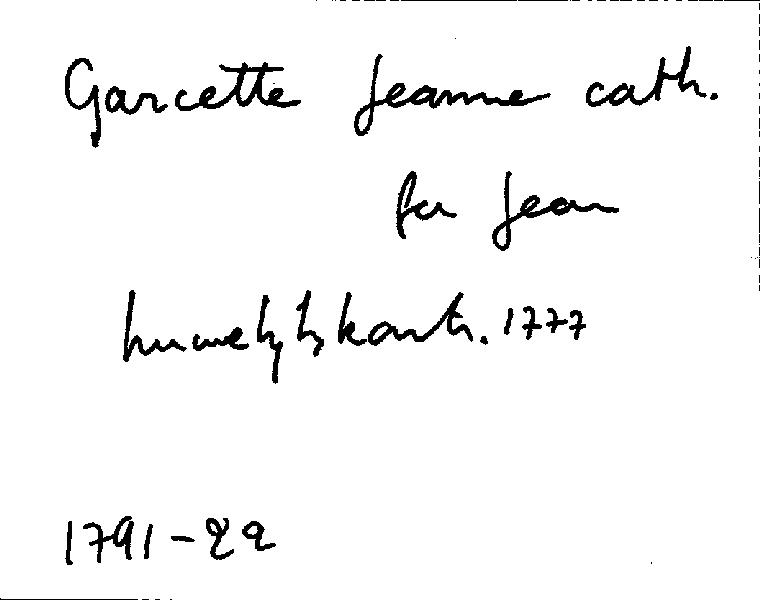 Garcette Jeanne cath.
fa Jean
huwelykskontr. 1777
1791-22